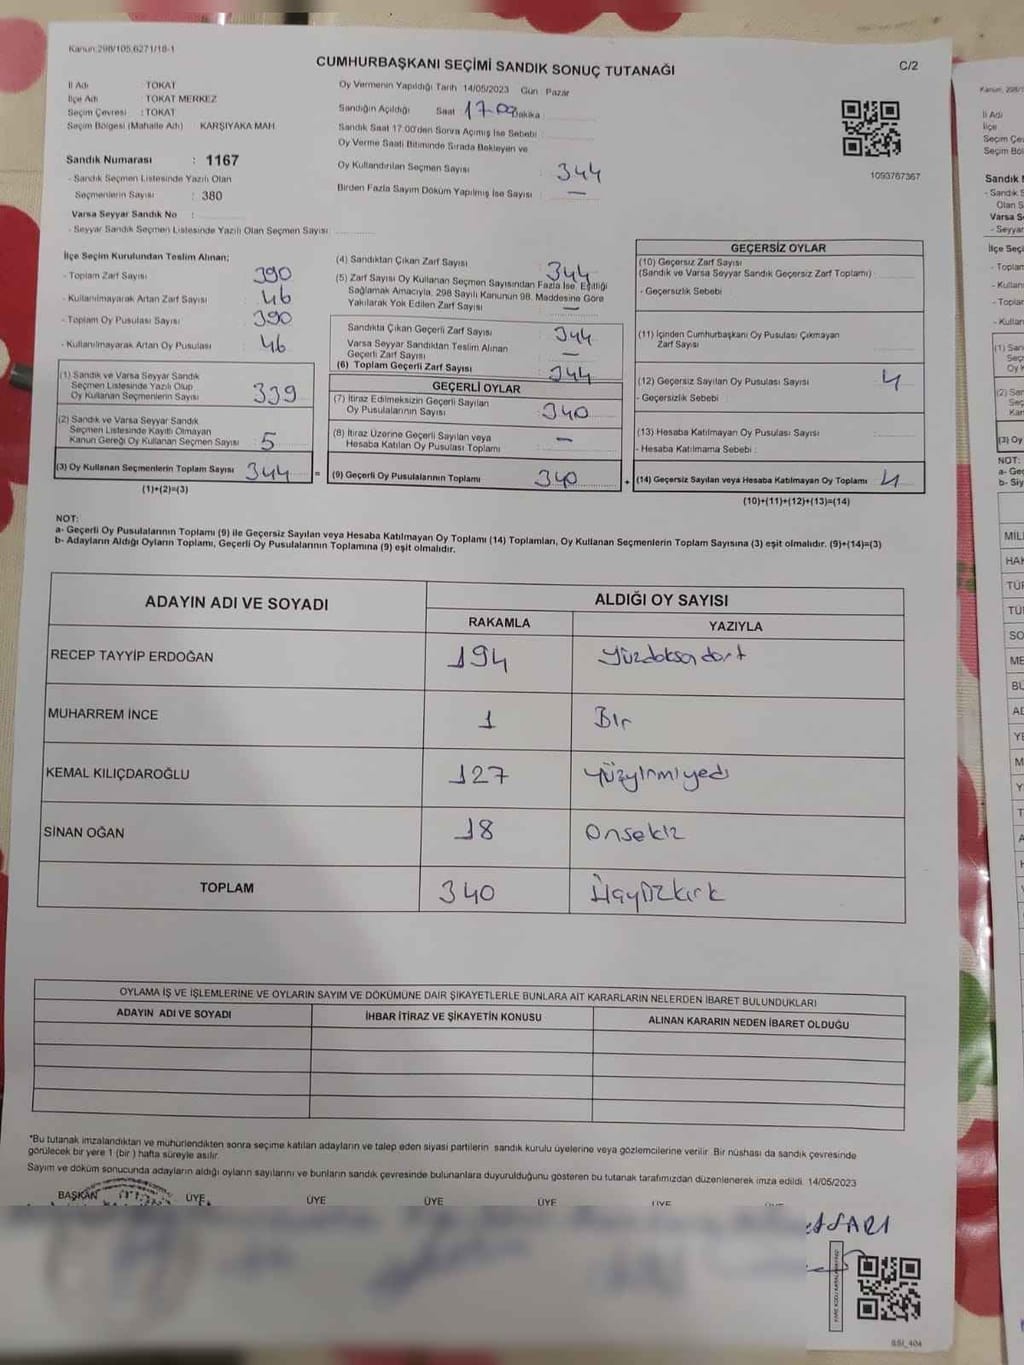 Kanun:298/105,6271/18-1
CUMHURBAŞKANI SEÇİMİ SANDIK SONUÇ TUTANAĞI
C/2
İl Adı : TOKAT
İlçe Adı : TOKAT MERKEZ
Seçim Çevresi : TOKAT
Seçim Bölgesi (Mahalle Adı) KARŞIYAKA MAH.
Sandık Numarası : 1167
- Sandık Seçmen Listesinde Yazılı Olan
Seçmenlerin Sayısı : 380
Varsa Seyyar Sandık No :
- Seyyar Sandık Seçmen Listesinde Yazılı Olan Seçmen Sayısı:
Oy Vermenin Yapıldığı Tarih 14/05/2023 Gün : Pazar
Sandığın Açıldığı Saat 17:00 Dakika
Sandık Saat 17:00'den Sonra Açımış İse Sebebi :
Oy Verme Saati Bitiminde Sırada Bekleyen ve
Oy Kullandırılan Seçmen Sayısı : 344
Birden Fazla Sayım Döküm Yapılmış İse Sayısı : —
1093767367
İlçe Seçim Kurulundan Teslim Alınan;
- Toplam Zarf Sayısı : 390
- Kullanılmayarak Artan Zarf Sayısı : 46
- Toplam Oy Pusulası Sayısı : 390
- Kullanılmayarak Artan Oy Pusulası : 46
(1) Sandık ve Varsa Seyyar Sandık
Seçmen Listesinde Yazılı Olup
Oy Kullanan Seçmenlerin Sayısı : 339
(2) Sandık ve Varsa Seyyar Sandık
Seçmen Listesinde Kayıtlı Olmayan
Kanun Gereği Oy Kullanan Seçmen Sayısı : 5
(3) Oy Kullanan Seçmenlerin Toplam Sayısı : 344
(1)+(2)=(3)
(4) Sandıktan Çıkan Zarf Sayısı : 344
(5) Zarf Sayısı Oy Kullanan Seçmen Sayısından Fazla İse, Eşitliği
Sağlamak Amacıyla, 298 Sayılı Kanunun 98. Maddesine Göre
Yakılarak Yok Edilen Zarf Sayısı : —
Sandıkta Çıkan Geçerli Zarf Sayısı : 344
Varsa Seyyar Sandıktan Teslim Alınan
Geçerli Zarf Sayısı : —
(6) Toplam Geçerli Zarf Sayısı : 344
GEÇERLİ OYLAR
(7) İtiraz Edilmeksizin Geçerli Sayılan
Oy Pusulalarının Sayısı : 340
(8) İtiraz Üzerine Geçerli Sayılan veya
Hesaba Katılan Oy Pusulası Toplamı : —
= (9) Geçerli Oy Pusulalarının Toplamı : 340
GEÇERSİZ OYLAR
(10) Geçersiz Zarf Sayısı
(Sandık ve Varsa Seyyar Sandık Geçersiz Zarf Toplamı) :
- Geçersizlik Sebebi :
(11) İçinden Cumhurbaşkanı Oy Pusulası Çıkmayan
Zarf Sayısı :
(12) Geçersiz Sayılan Oy Pusulası Sayısı : 4
- Geçersizlik Sebebi :
(13) Hesaba Katılmayan Oy Pusulası Sayısı :
- Hesaba Katılmama Sebebi :
+ (14) Geçersiz Sayılan veya Hesaba Katılmayan Oy Toplamı : 4
(10)+(11)+(12)+(13)=(14)
NOT:
a- Geçerli Oy Pusulalarının Toplamı (9) ile Geçersiz Sayılan veya Hesaba Katılmayan Oy Toplamı (14) Toplamları, Oy Kullanan Seçmenlerin Toplam Sayısına (3) eşit olmalıdır. (9)+(14)=(3)
b- Adayların Aldığı Oyların Toplamı, Geçerli Oy Pusulalarının Toplamına (9) eşit olmalıdır.
ADAYIN ADI VE SOYADI
ALDIĞI OY SAYISI
RAKAMLA YAZIYLA
RECEP TAYYİP ERDOĞAN 194 Yüzdoksadört
MUHARREM İNCE 1 Bir
KEMAL KILIÇDAROĞLU 127 yüzyirmiyedi
SİNAN OĞAN 18 Onsekiz
TOPLAM 340 Üçyüzkırk
OYLAMA İŞ VE İŞLEMLERİNE VE OYLARIN SAYIM VE DÖKÜMÜNE DAİR ŞİKAYETLERLE BUNLARA AİT KARARLARIN NELERDEN İBARET BULUNDUKLARI
ADAYIN ADI VE SOYADI İHBAR İTİRAZ VE ŞİKAYETİN KONUSU ALINAN KARARIN NEDEN İBARET OLDUĞU
*Bu tutanak imzalandıktan ve mühürlendikten sonra seçime katılan adayların ve talep eden siyasi partilerin sandık kurulu üyelerine veya gözlemcilerine verilir. Bir nüshası da sandık çevresinde
görülecek bir yere 1 (bir) hafta süreyle asılır.
Sayım ve döküm sonucunda adayların aldığı oyların sayılarını ve bunların sandık çevresinde bulunanlara duyurulduğunu gösteren bu tutanak tarafımızdan düzenlenerek imza edildi. 14/05/2023
BAŞKAN ÜYE ÜYE ÜYE ÜYE ÜYE
SARI
Kanun, 298/1
İl Adı
İlçe
Seçim Çe
Seçim Böl
Sandık
- Sandık S
Olan S
Varsa S
- Seyyar
İlçe Seçi
- Toplam
- Kullan
- Toplam
- Kullan
(1) San
(2) San
(3) Oy
NOT:
a- Geç
b- Siy